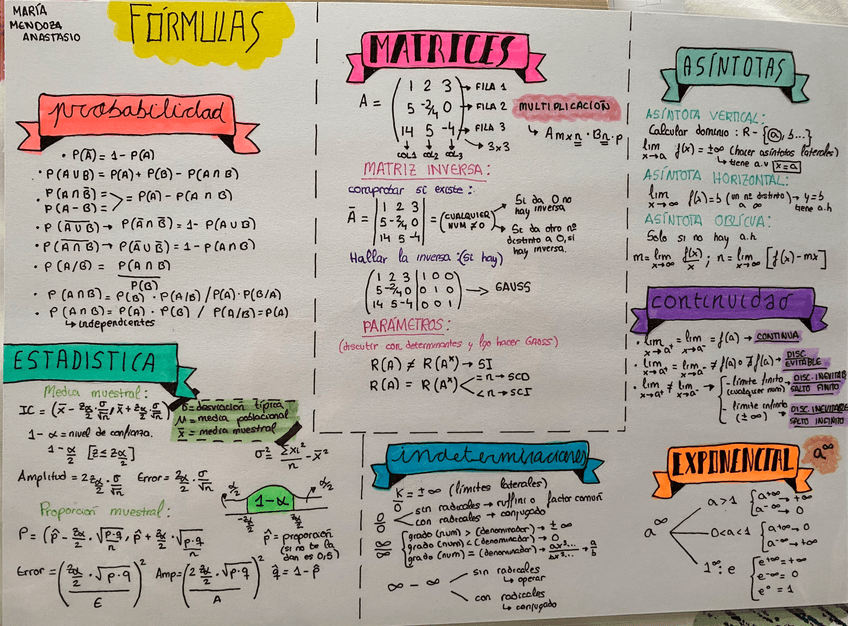 MARÍA
MENDOZA
ANASTASIO
FÓRMULAS
probabilidad
• P(A̅) = 1 - P(A)
• P(A∪B) = P(A) + P(B) - P(A∩B)
P(A∩B̅) =
P(A-B) = > = P(A) - P(A∩B)
• P(A̅∪B̅) → P(A̅∩B̅) = 1 - P(A∪B)
• P(A̅∩B̅) → P(A̅∪B̅) = 1 - P(A∩B)
• P(A/B) = P(A∩B)
P(B)
• P(A∩B) = P(B) · P(A/B) / P(A) · P(B/A)
• P(A∩B) = P(A) · P(B) / P(A/B) = P(A)
↳ independientes
ESTADISTICA
Media muestral:
IC = (x̅ - Zα/2 · σ/√n, x̅ + Zα/2 · σ/√n)
σ = desviación típica
μ = media poblacional
x̅ = media muestral
1-α = nivel de confianza.
1 - α/2 [z ≤ zα/2]
σ² = Σxi²/n - x̅²
Amplitud = 2 zα/2 · σ/√n Error = zα/2 · σ/√n
α/2 1-α α/2
-zα/2 zα/2
Proporcion muestral:
P = (p̂ - zα/2 · √p·q/n, p̂ + zα/2 · √p·q/n)
p̂ = proporción
(si no te la
dan es 0,5)
q̂ = 1 - p̂
Error = (zα/2 · √p·q / E)² Amp = (2 zα/2 · √p·q / A)²
MATRICES
A = ( 1 2 3 → FILA 1
5 -2/4 0 → FILA 2
14 5 -4 ) → FILA 3
COL1 COL2 COL3 3x3
MULTIPLICACIÓN
↳ Amxn · Bn·p
MATRIZ INVERSA:
comprobar si existe:
A̅ = | 1 2 3
5 -2/4 0
14 5 -4 | = (CUALQUIER
NUM ≠ 0)
Si da 0 no
hay inversa
Si da otro nº
distinto a 0, si
hay inversa.
Hallar la inversa: (si hay)
( 1 2 3 | 1 0 0
5 -2/4 0 | 0 1 0
14 5 -4 | 0 0 1 ) → GAUSS
PARÁMETROS:
(discutir con determinantes y lgo hacer GAUSS)
R(A) ≠ R(A*) → SI
R(A) = R(A*) < = n → SCD
< n → SCI
ASÍNTOTAS
ASÍNTOTA VERTICAL:
Calcular dominio: R - {a, b...}
lim x→a f(x) = ±∞ (hacer asíntotas laterales)
↳ tiene a.v x=a
ASÍNTOTA HORIZONTAL:
lim x→∞ f(x) = b (un nº distinto a ∞) → y=b
tiene a.h
ASÍNTOTA OBLÍCUA:
Solo si no hay a.h
m = lim x→∞ f(x)/x ; n = lim x→∞ [f(x) - mx]
continuidad
• lim x→a⁺ = lim x→a⁻ = f(a) → CONTINUA
• lim x→a⁺ = lim x→a⁻ ≠ f(a) o ∄ f(a) → DISC. EVITABLE
• lim x→a⁺ ≠ lim x→a⁻ →
- límite finito → DISC. INEVITAB
(cualquier num) SALTO FINITO
- límite infinito → DISC. INEVITABLE
(±∞) SALTO INFINITO
indeterminaciones
K/0 = ±∞ (límites laterales)
0/0 sin radicales → ruffini o factor común
con radicales → conjugado
∞/∞ grado (num) > (denominador) → ±∞
grado (num) < (denominador) → 0
grado (num) = (denominador) → ax².../bx²... → a/b
∞ - ∞ sin radicales
↳ operar
con radicales
↳ conjugado
EXPONENCIAL a^∞
a^∞
a>1 { a^+∞ → +∞
a^-∞ → 0
0<a<1 { a^+∞ → 0
a^-∞ → +∞
1^∞: e { e^+∞ = +∞
e^-∞ = 0
e° = 1